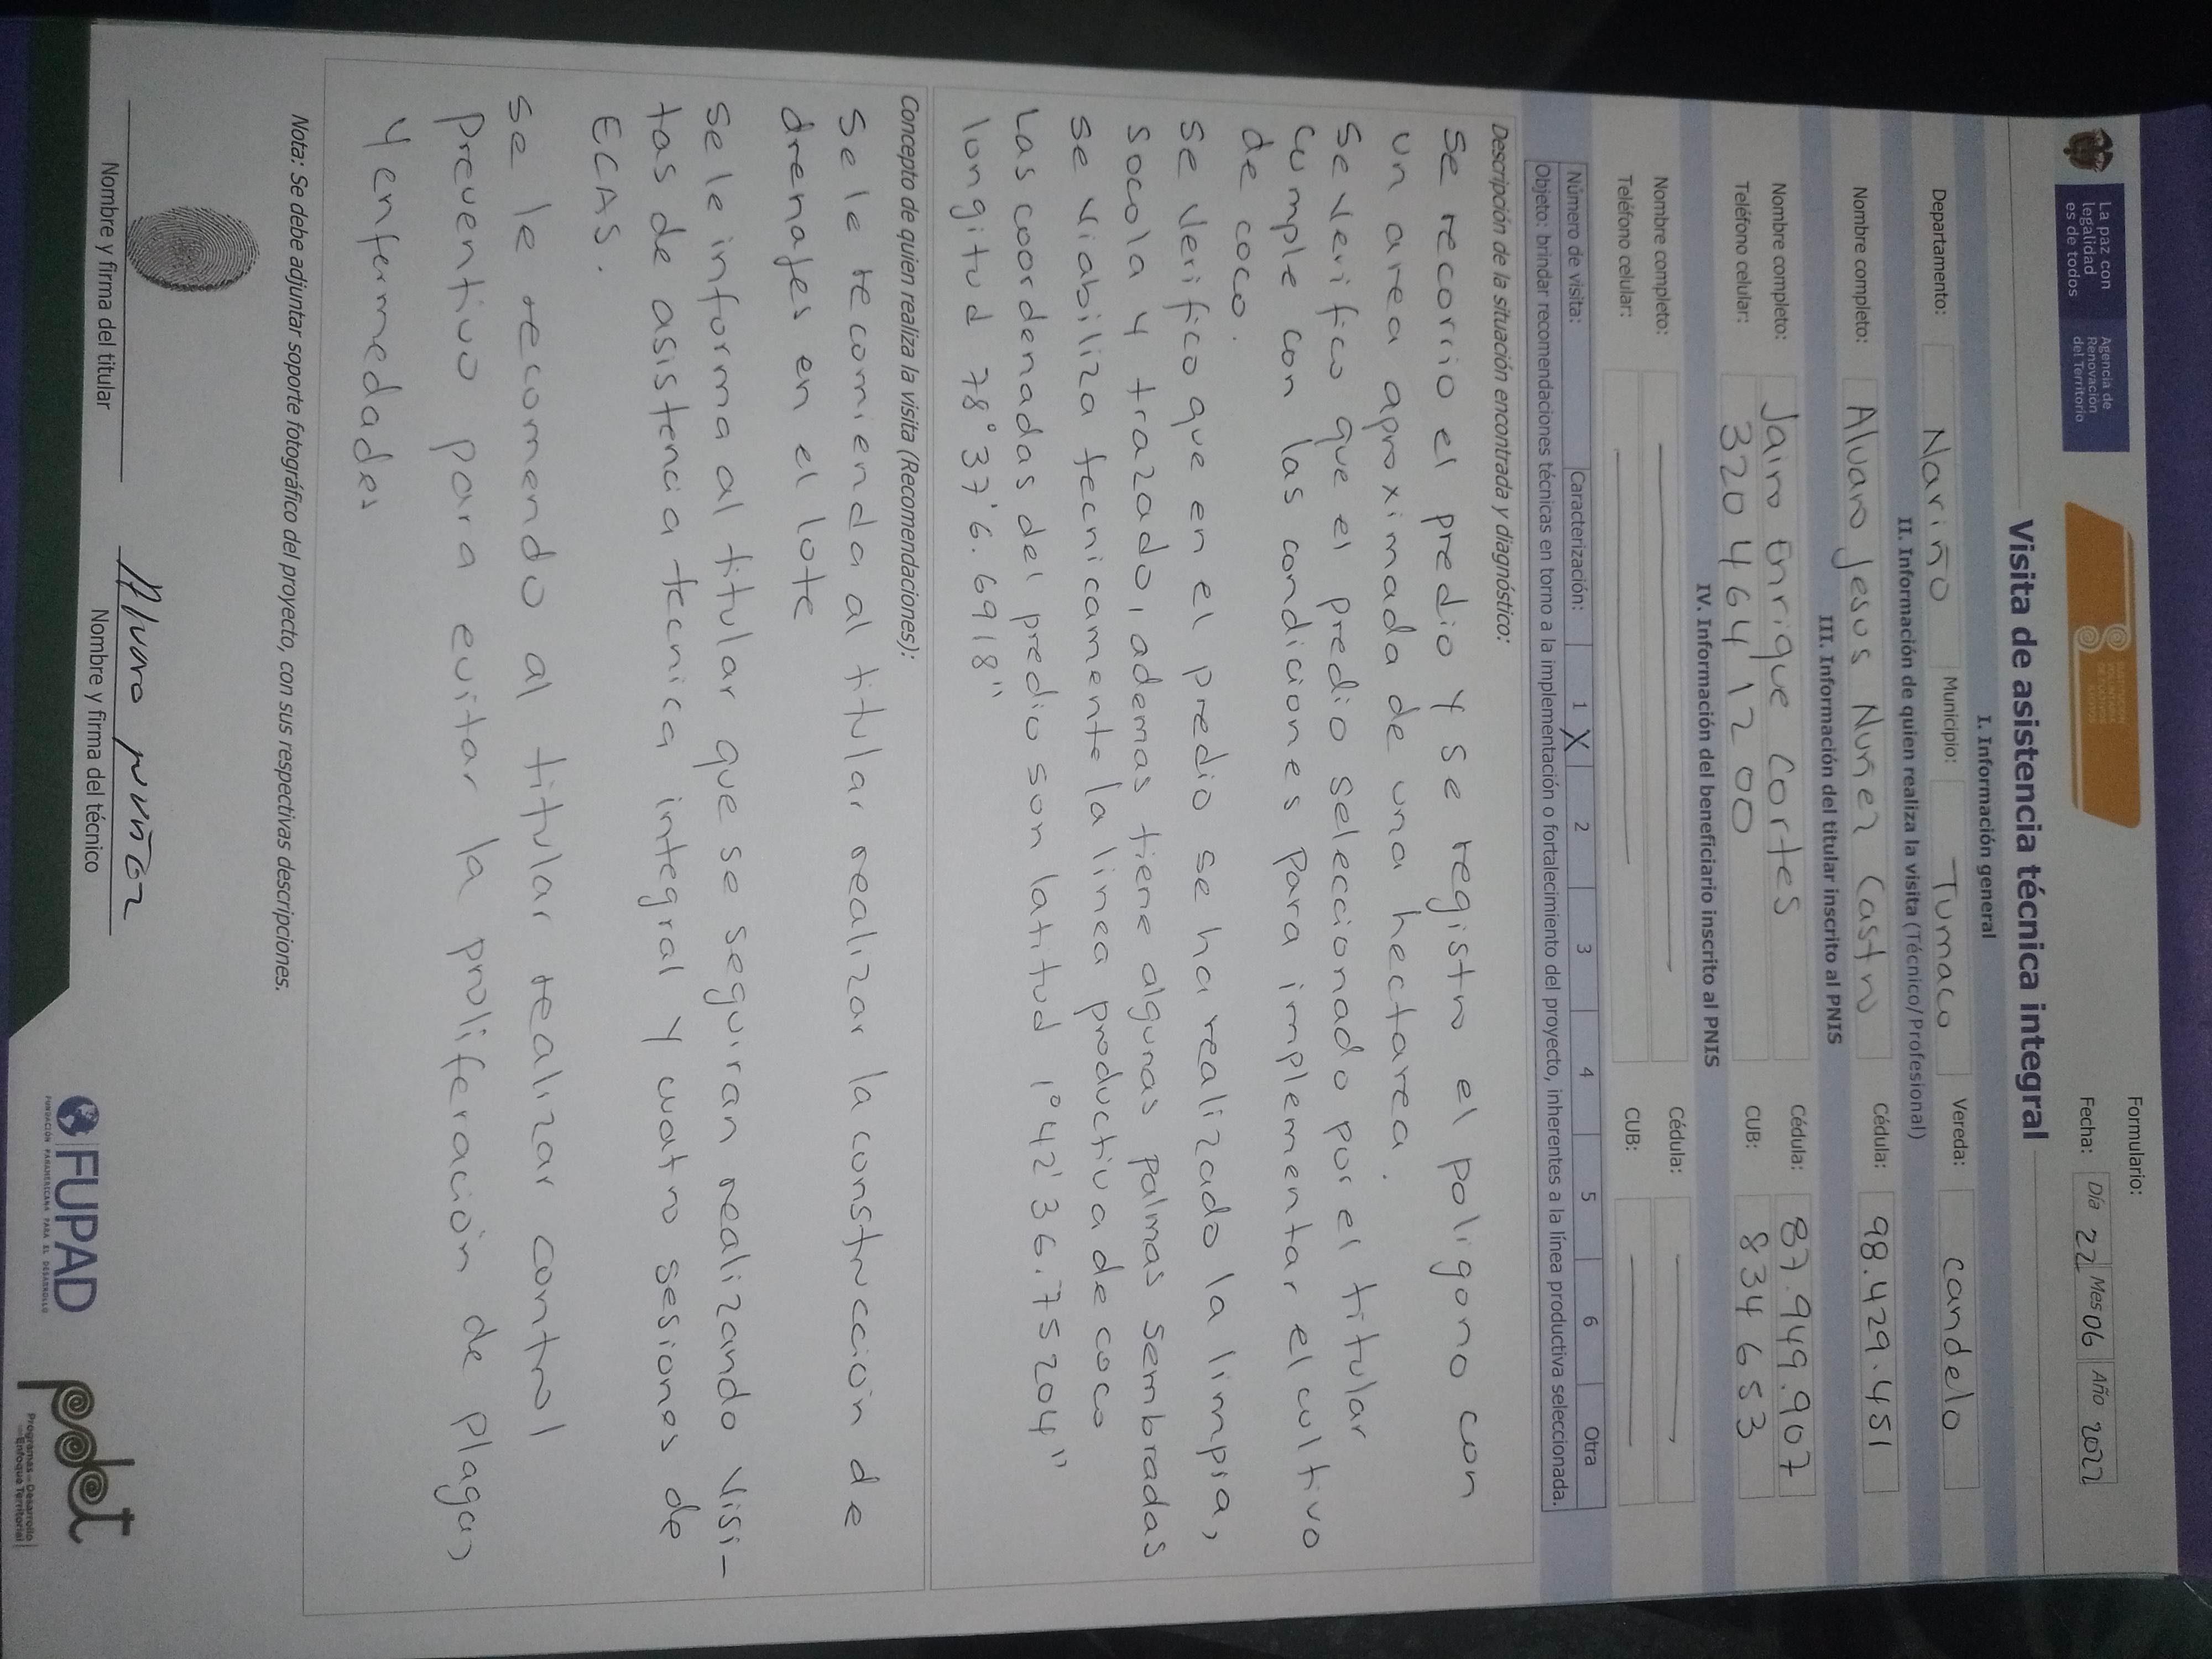 La paz con
legalidad
es de todos
Agencia de
Renovación
del Territorio
SUSTITUCIÓN
VOLUNTARIA
DE CULTIVOS
ILÍCITOS
Formulario:
Fecha: Día 22 Mes 06 Año 2022
Visita de asistencia técnica integral
I. Información general
Departamento: Nariño Municipio: Tumaco Vereda: Candelo
II. Información de quien realiza la visita (Técnico/Profesional)
Nombre completo: Alvaro Jesus Nuñez Castro Cédula: 98.429.451
III. Información del titular inscrito al PNIS
Nombre completo: Jairo Enrique Cortes Cédula: 87.949.907
Teléfono celular: 320 464 12 00 CUB: 834653
IV. Información del beneficiario inscrito al PNIS
Nombre completo: Cédula:
Teléfono celular: CUB:
Número de visita: Caracterización: 1 X 2 3 4 5 6 Otra
Objeto: brindar recomendaciones técnicas en torno a la implementación o fortalecimiento del proyecto, inherentes a la línea productiva seleccionada.
Descripción de la situación encontrada y diagnóstico:
Se recorrio el predio y se registro el poligono con
un area aproximada de una hectarea.
Se verifico que el predio seleccionado por el titular
cumple con las condiciones para implementar el cultivo
de coco.
Se verifico que en el predio se ha realizado la limpia,
socola y trazado, ademas tiene algunas palmas sembradas
se viabiliza tecnicamente la linea productiva de coco
Las coordenadas del predio son latitud 1°42'36.75204"
longitud 78°37'6.6918"
Concepto de quien realiza la visita (Recomendaciones):
Se le recomienda al titular realizar la construcción de
drenajes en el lote
Se le informa al titular que se seguiran realizando visi-
tas de asistencia tecnica integral y cuatro sesiones de
ECAS.
Se le recomendo al titular realizar control
preventivo para evitar la proliferación de plagas
y enfermedades
Nota: Se debe adjuntar soporte fotográfico del proyecto, con sus respectivas descripciones.
Alvaro Nuñez
Nombre y firma del titular Nombre y firma del técnico
FUPAD
FUNDACIÓN PANAMERICANA PARA EL DESARROLLO
pdet
Programas de Desarrollo
con Enfoque Territorial